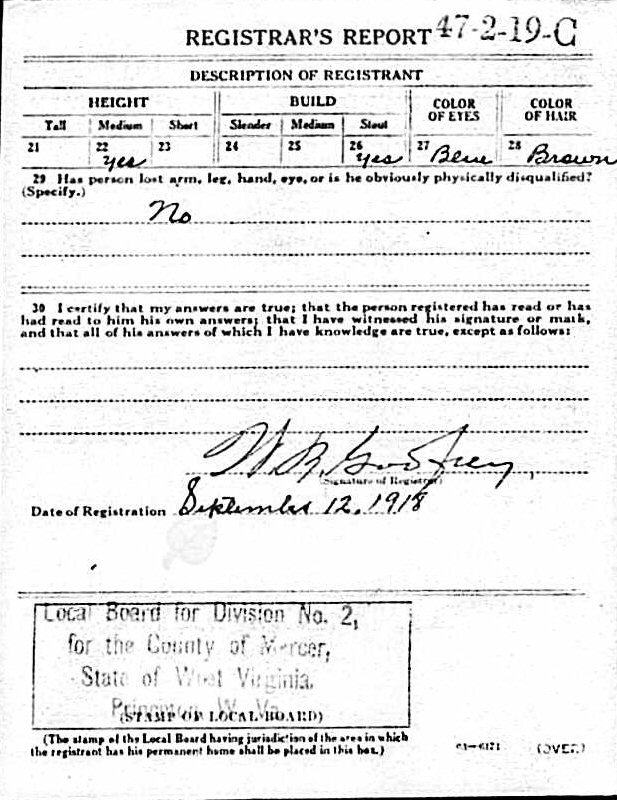 REGISTRAR'S REPORT 47-2-19-C
DESCRIPTION OF REGISTRANT
HEIGHT BUILD COLOR OF EYES COLOR OF HAIR
Tall Medium Short Slender Medium Stout
21 22 yes 23 24 25 26 yes 27 Blue 28 Brown
29 Has person lost arm, leg, hand, eye, or is he obviously physically disqualified?
(Specify.)
No
30 I certify that my answers are true; that the person registered has read or has
had read to him his own answers; that I have witnessed his signature or mark,
and that all of his answers of which I have knowledge are true, except as follows:
W. R. Godfrey
(Signature of Registrar)
Date of Registration September 12, 1918
Local Board for Division No. 2,
for the County of Mercer,
State of West Virginia.
Princeton, W. Va.
(STAMP OF LOCAL BOARD)
(The stamp of the Local Board having jurisdiction of the area in which
the registrant has his permanent home shall be placed in this box.)
03—6171 (OVER)